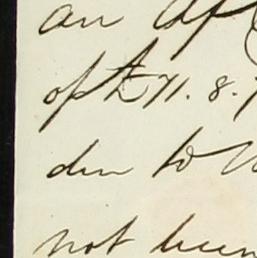 an
of £71.8.
due to
not been